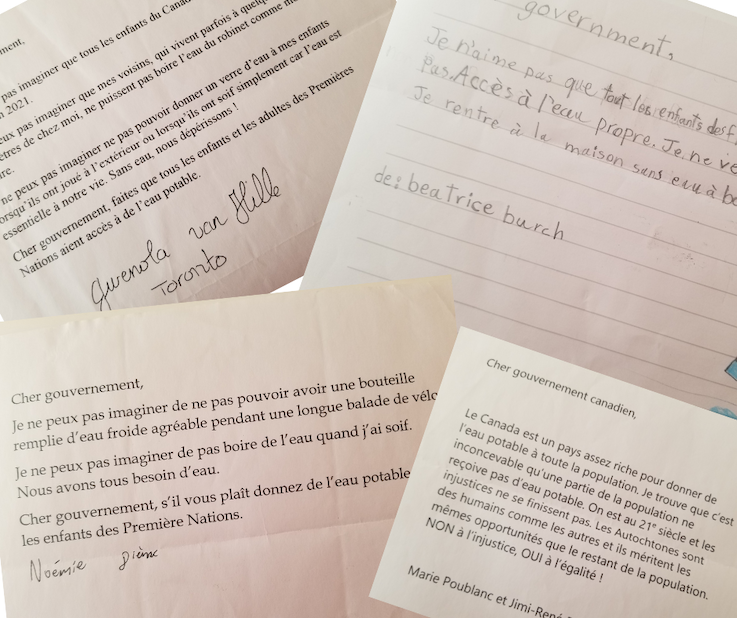 ment,
pas imaginer que tous les enfants du Canad
n 2021.
eux pas imaginer que mes voisins, qui vivent parfois à quelq
ètres de chez moi, ne puissent pas boire l'eau du robinet comme
re.
ne peux pas imaginer ne pas pouvoir donner un verre d'eau à mes enfants
orsqu'ils ont joué à l'extérieur ou lorsqu'ils ont soif simplement car l'eau est
essentielle à notre vie. Sans eau, nous dépérissons !
Cher gouvernement, faites que tous les enfants et les adultes des Premières
Nations aient accès à de l'eau potable.
Gwenola van Hille
Toronto
government,
Je n'aime pas que tout les enfants des
Pas. Accès à l'eau propre. Je ne ve
Je rentre à la maison sans eau à bo
de: beatrice burch
Cher gouvernement,
Je ne peux pas imaginer de ne pas pouvoir avoir une bouteille
remplie d'eau froide agréable pendant une longue balade de vélo
Je ne peux pas imaginer de pas boire de l'eau quand j'ai soif.
Nous avons tous besoin d'eau.
Cher gouvernement, s'il vous plaît donnez de l'eau potable
les enfants des Première Nations.
Noémie
Cher gouvernement canadien,
Le Canada est un pays assez riche pour donner de
l'eau potable à toute la population. Je trouve que c'est
inconcevable qu'une partie de la population ne
reçoive pas d'eau potable. On est au 21e siècle et les
injustices ne se finissent pas. Les Autochtones sont
des humains comme les autres et ils méritent les
mêmes opportunités que le restant de la population.
NON à l'injustice, OUI à l'égalité !
Marie Poublanc et Jimi-René